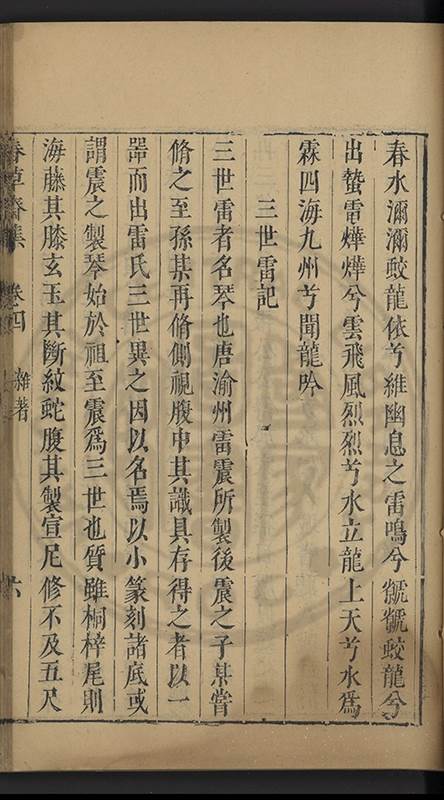 春水瀰瀰蛟龍依兮維幽息之雷鳴兮虩虩蛟龍兮
出蟄電燁燁兮雲飛風烈烈兮水立龍上天兮水爲
霖四海九州兮聞龍吟
三世雷記
三世雷者名琴也唐渝州雷震所製後震之子某嘗
脩之至孫某再脩側視腹中其識具存得之者以一
噐而出雷氏三世異之因以名焉以小篆刻諸底或
謂震之製琴始於祖至震爲三世也質雖桐梓尾則
海藤其膝玄玉其斷紋蛇腹其製宣尼修不及五尺
春草齋集 卷四 雜著 六